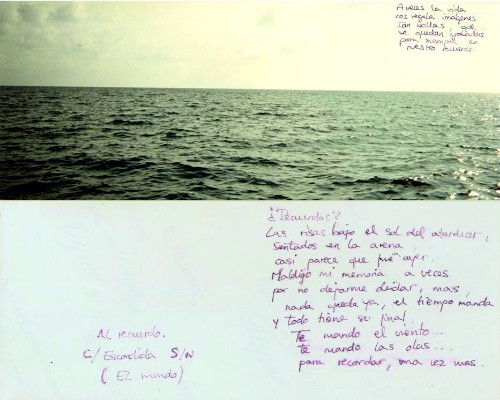 A veces la vida
nos regala imágenes
tan bellas, que
se quedan grabadas
para siempre en
nuestro recuerdo.
¿Recuerdas?
Las risas bajo el sol del atardecer,
sentados en la arena,
casi parece que fue ayer.
Maldigo mi memoria a veces
por no dejarme olvidar, mas,
nada queda ya, el tiempo manda
y todo tiene su final.
Te mando el viento...
te mando las olas...
para recordar, una vez mas.
Al recuerdo.
C/ Escondida S/N
(El mundo)